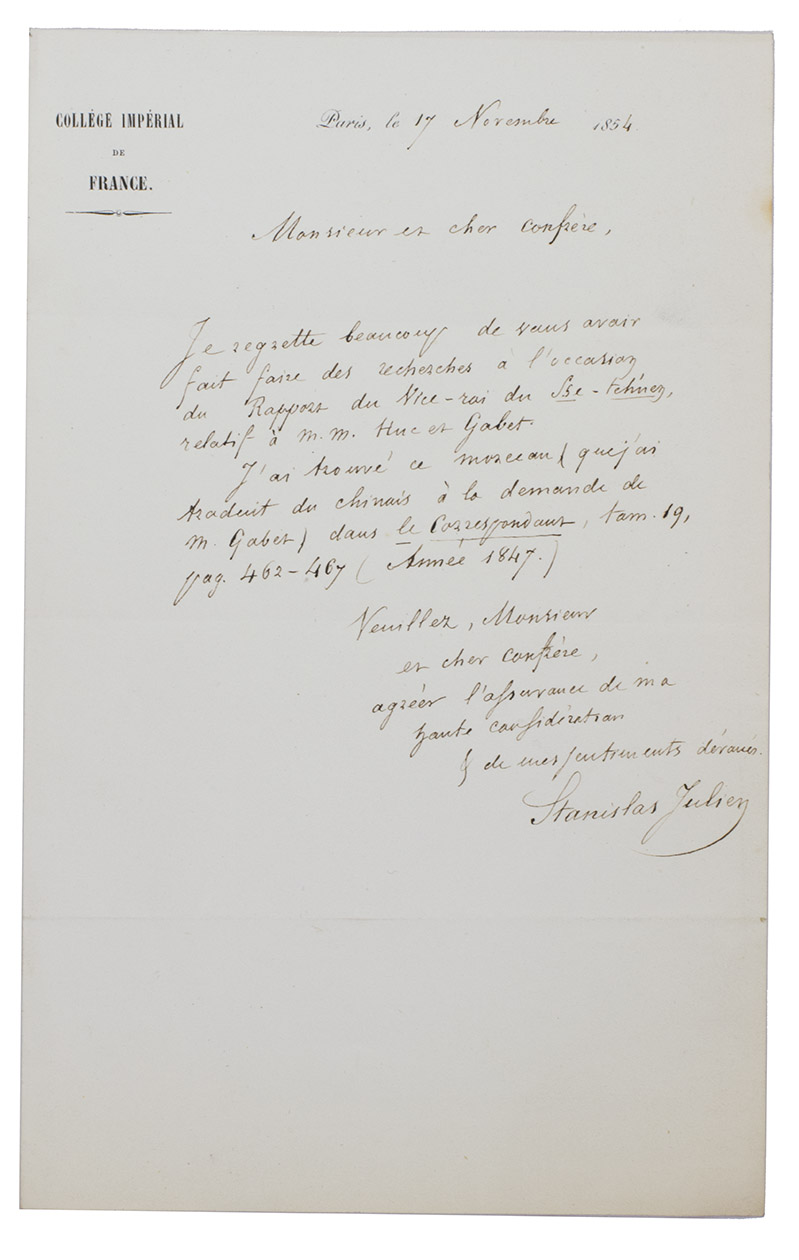 COLLÉGE IMPÉRIAL
DE
FRANCE.
Paris, le 17 Novembre 1854
Monsieur et cher confrère,
Je regrette beaucoup de vous avoir
fait faire des recherches à l'occasion
du Rapport du Vice-roi du Sse-tchuen,
relatif à M.M. Huc et Gabet.
J'ai trouvé ce morceau (que j'ai
traduit du chinois à la demande de
M. Gabet) dans le Correspondant, tom. 19,
pag. 462-467 (Année 1847.)
Veuillez, Monsieur
et cher confrère,
agréer l'assurance de ma
haute considération
& de mes sentiments dévoués.
Stanislas Julien